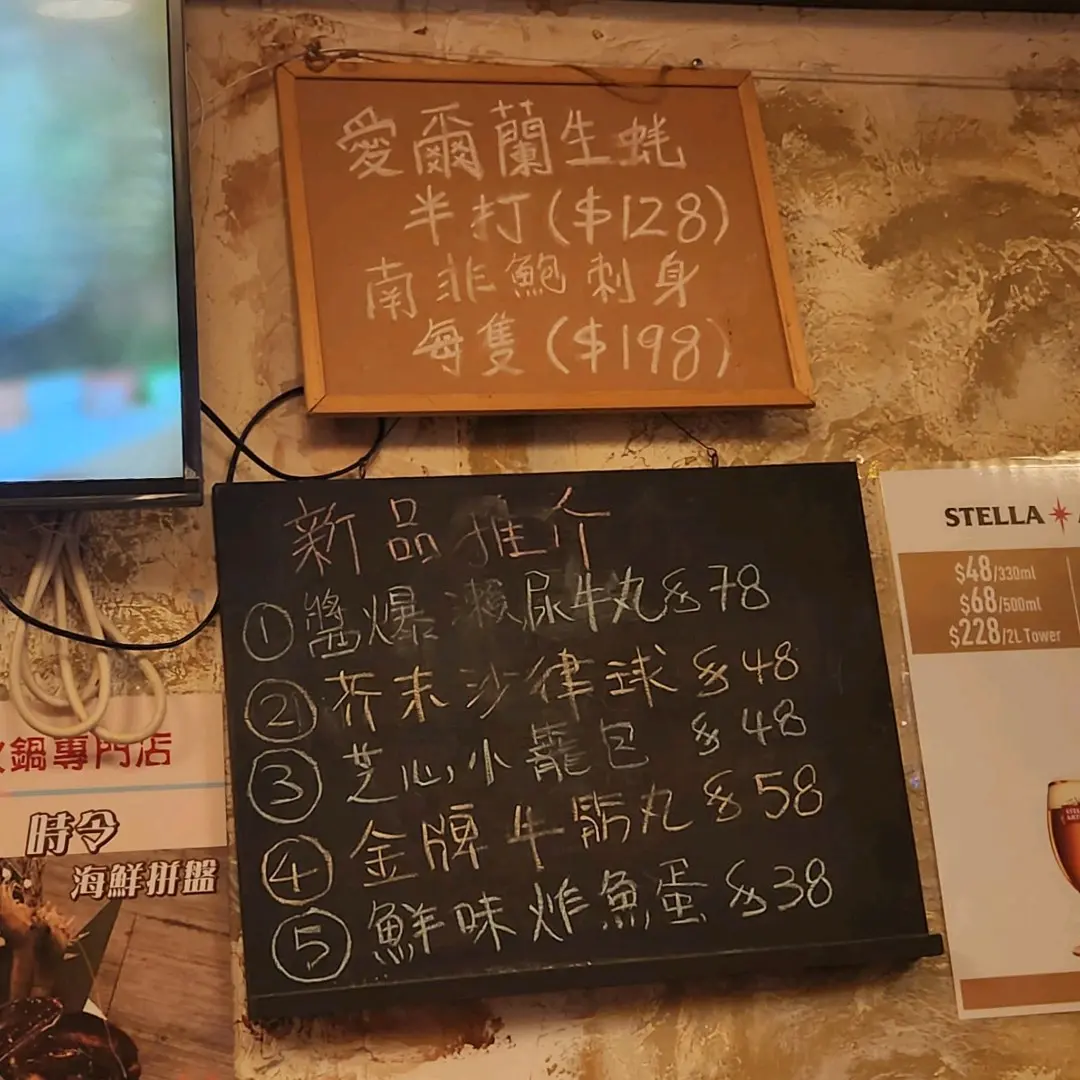 愛爾蘭生蚝
半打($128)
南非鮑刺身
每隻($198)
新品推介
① 醬爆瀨尿牛丸 $78
② 芥末沙律球 $48
③ 芝心小籠包 $48
④ 金牌牛𦟌丸 $58
⑤ 鮮味炸魚蛋 $38
STELLA
$48/330ml
$68/500ml
$228/2L Tower
火鍋專門店
時令
海鮮拼盤